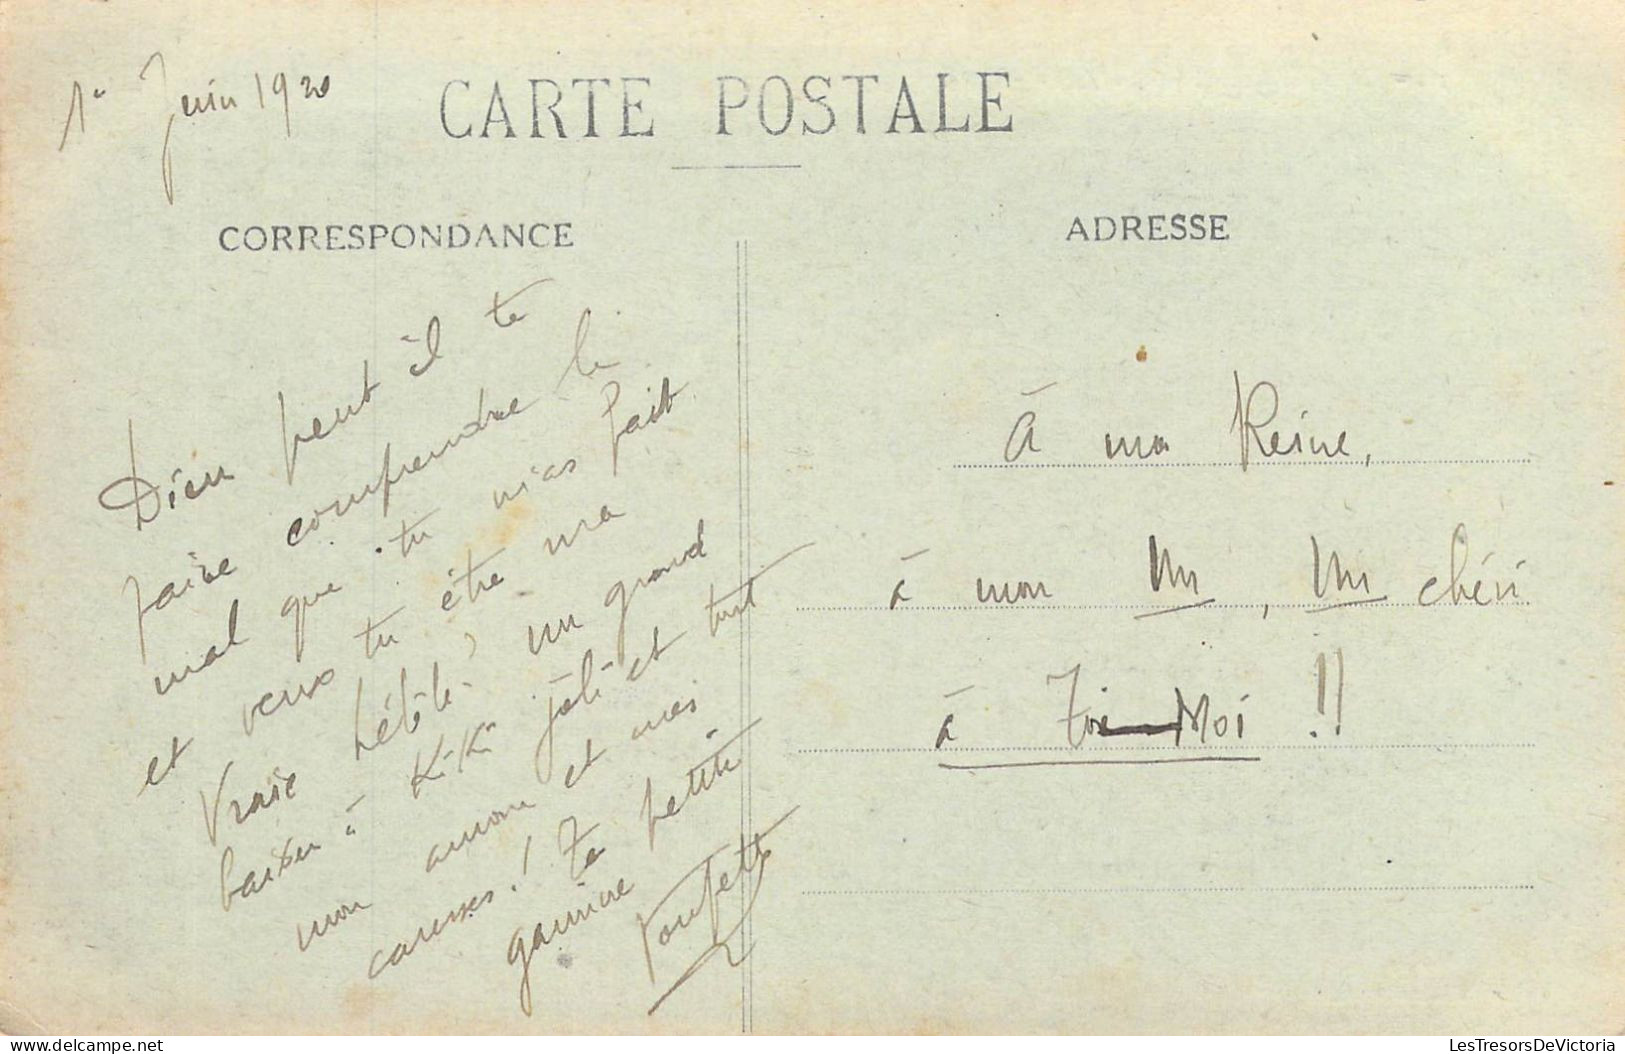 1er Juin 1920
CARTE POSTALE
CORRESPONDANCE
Dieu peut il te
faire comprendre le
mal que tu m'as fait
et veux tu être ma
vraie bébête, un grand
baiser à KiKi joli et tout
mon amour et mes
caresses! Ta petite
gamine
ADRESSE
à ma Reine,
à mon chéri
à Toi-Moi !!
LesTresorsDeVictoria